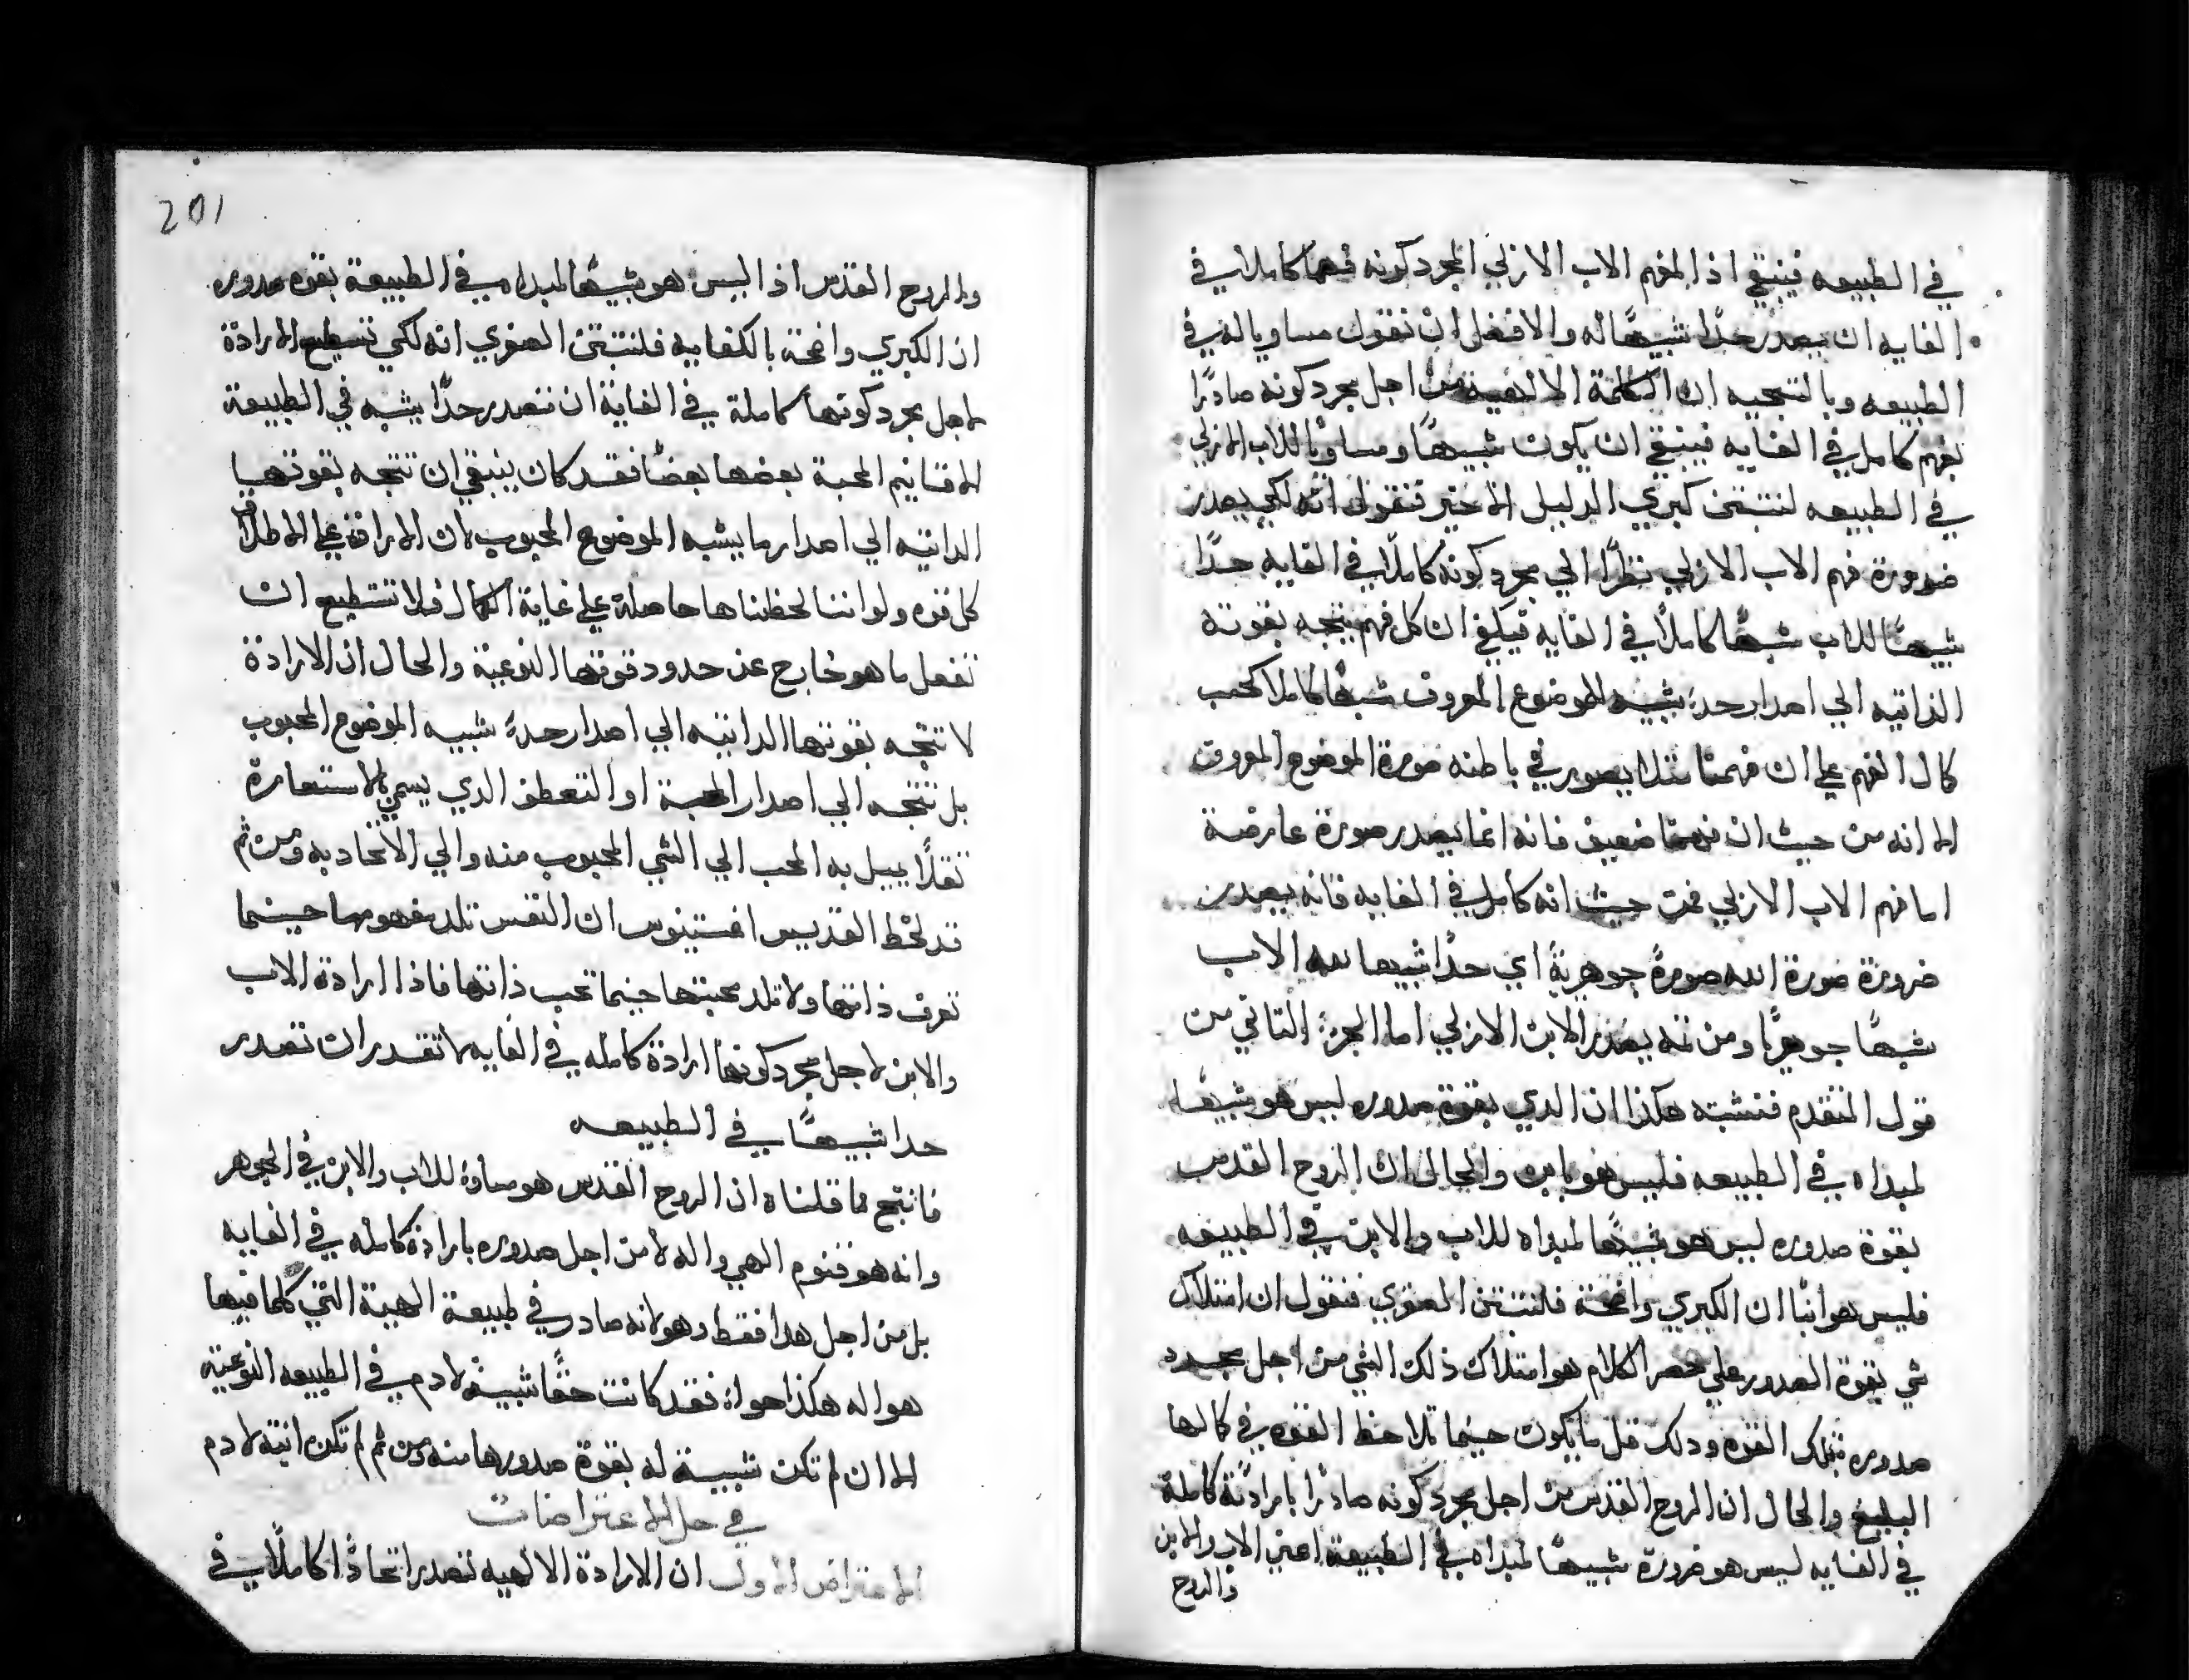 في الطبيعه فينبغي اذا لفهم الاب الازلي لمجرد كونه فهما كاملاً في
الغايه ان يصدر حدًا شبيهًا له والافضل ان نقول مساويا له في
الطبيعه وبالنتيجه ان الكلمة الالهية من اجل مجرد كونه صادرًا
بفهم كامل في الغايه فينبغي ان يكون شبيهًا ومساويًا للاب الازلي
في الطبيعه لنثبتن كبري الدليل الاخير فنقول انه لكي يصدر
ضرورة فهم الاب الازلي نظرًا الي مجرد كونه كاملاً في الغايه حدًا
شبيهًا للاب شبهًا كاملاً في الغايه فيكفي ان كل فهم يتجه بقوته
الذاتيه الي اصدار حد شبيه للموضوع المعروف شبهًا كاملا كحسب
كمال الفهم علي ان فهمنا مثلا يصور في باطنه صورة الموضوع المعروف
الا انه من حيث ان فهمنا ضعيف فانه انما يصدر صورة عارضة
اما فهم الاب الازلي فمن حيث انه كامل في الغايه فانه يصدر
ضرورة صورة الله صورةً جوهريةً اي حدًا شبيها لله الاب
شبهًا جوهريًا ومن ثمه يصدر الابن الازلي اما الجزء الثاني من
قول المتقدم فنثبته هكذا ان الدي بقوة صدوره ليس هو شبيهًا
لمبداه في الطبيعه فليس هو بابن والحال ان الروح القدس
بقوة صدوره ليس هو شبيهًا لمبداه للاب والابن في الطبيعه
فليس هو ابنًا ان الكبري واضحة فلنثبتن الصغري فنقول ان امتلاك
شي بقوة الصدور علي حصر الكلام هو امتلاك ذلك الشي من اجل مجرد
صدوره بتملك القوه ودلك قل ما يكون حينما تلاحظ القوه في كمالها
البليغ والحال ان الروح القدس من اجل مجرد كونه صادرًا بارادةٍ كاملة
في الغايه ليس هو ضرورة شبيهًا لمبداه في الطبيعة اعني الاب والابن
والروح
201
والروح القدس اذا ليس هو شبيهًا لمبداه في الطبيعة بقوه صدوره
ان الكبري واضحة بالكفايه فلنثبتن الصغري انه لكي تستطيع الارادة
لاجل مجرد كونها كاملة في الغاية ان تصدر حدًا يشبه في الطبيعة
الاقانيم المحبة بعضها بعضًا فقد كان ينبغي ان تتجه بقوتها
الداتيه الي اصدار ما يشبه الموضوع المحبوب لان الارادة علي الاطلاق
كل قوه ولو اننا لحظناها حاصلة علي غاية الكمال فلا تستطيع ان
تفعل ما هو خارج عن حدود قوتها النوعية والحال ان الارادة
لا تتجه بقوتها الداتيه الي اصدار حدٍ شبيه الموضوع المحبوب
بل تتجه الي اصدار المحبة او التعطف الدي يسمي بالاستعارة
ثقلاً يميل به المحب الي الشي المحبوب منه والي الاتحاد به ومن ثم
قد لحظ القديس اغستينوس ان النفس تلد مفهومها حينما
تعرف ذاتها ولا تلد محبتها حينما تحب ذاتها فاذا ارادة الاب
والابن لاجل مجرد كونها ارادة كامله في الغايه لا تقدر ان تصدر
حدا شبيهًا في الطبيعه
فانتج مما قلناه ان الروح القدس هو مساوٍ للاب والابن في الجوهر
وانه هو قنوم الهي واله لا من اجل صدوره بارادة كامله في الغايه
بل من اجل هدا فقط وهو لانه صادر في طبيعة الهية التي كلما فيها
هو اله هكذا حواء فقد كانت حقًا شبيهة لادم في الطبيعه النوعية
الا ان لم تكن شبيهة له بقوة صدورها منه ومن ثم لم تكن ابنة لادم
في حل الاعتراضات
الاعتراض الاول ان الارادة الالهيه تصدر اتحادًا كاملاً في